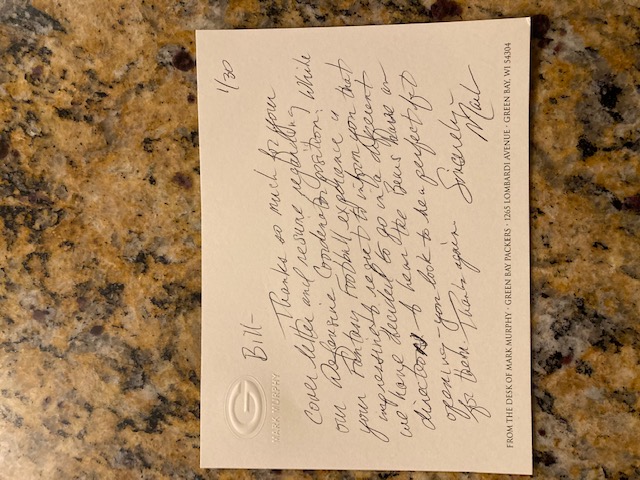 1/30
G
MARK MURPHY
Bill-
Thanks so much for your
cover letter and resume regarding
our Defensive Coordinator position. While
your Fantasy Football experience is
impressive, I regret to inform you that
we have decided to go in a different
direction. I hear the Bears have an
opening - you look to be a perfect fit
for them. Thanks again.
Sincerely,
Mark
FROM THE DESK OF MARK MURPHY · GREEN BAY PACKERS · 1265 LOMBARDI AVENUE · GREEN BAY, WI 54304